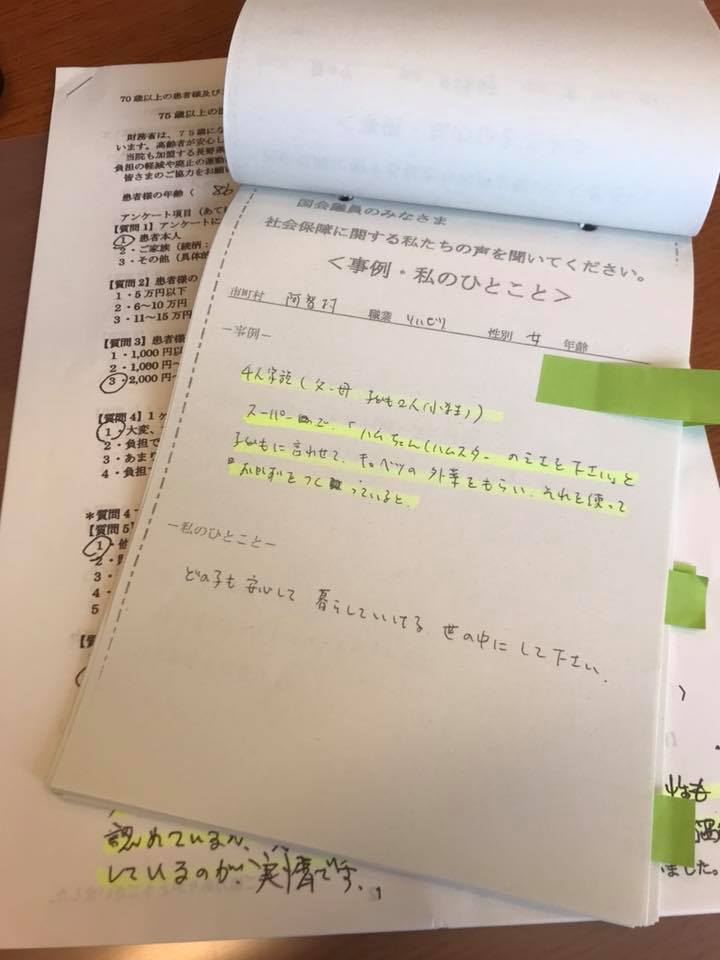 70歳以上の患者様及び
75歳以上の
財務省は、７５歳にな
います。高齢者が安心し
当院も加盟する長野
負担の軽減や廃止の運動
皆さまのご協力をお願
患者様の年齢（ 86
アンケート項目（あて
【質問１】アンケートに
1・患者本人
2・ご家族（続柄：
3・その他（具体的
【質問２】患者様の
1・5万円以下
2・6～10万円
3・11～15万
【質問３】患者様
1・1,000円以
2・1,000円～
3・2,000円～
【質問４】1ヶ
1・大変、
2・負担で
3・あまり
4・負担
＊質問４
【質問５】
1・他
2・
3・
4・
5
【質問
認れている
しているのが、実情です。
ました。
国会議員のみなさま
社会保障に関する私たちの声を聞いてください。
＜事例・私のひとこと＞
市町村 阿智村 職業 性別 女 年齢
―事例―
4人家族（父・母 子ども2人（小学生））
スーパーで、「ハムちゃん（ハムスター の エサを下さい」と
子どもに言わせて、キャベツの外葉をもらい、それを使って
おかずをつくっていると。
―私のひとこと―
どの子も安心して 暮らしていける 世の中にして下さい。